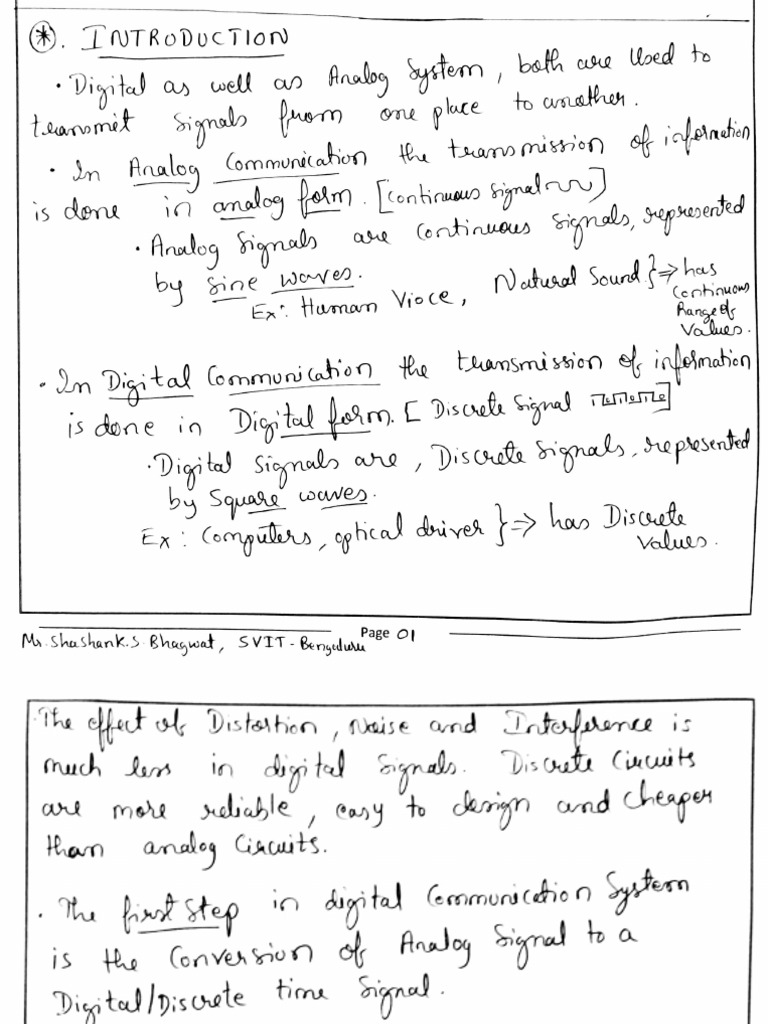 (*). INTRODUCTION
• Digital as well as Analog System, both are Used to
transmit Signals from one place to another.
• In Analog Communication the transmission of information
is done in analog form. [continuous Signal]
• Analog Signals are continuous Signals, represented
by Sine waves.
Ex: Human Vioce, Natural Sound } ⇒ has
Continuous
Range of
Values.
• In Digital Communication the transmission of information
is done in Digital form. [Discrete Signal]
• Digital Signals are, Discrete Signals, represented
by Square waves.
Ex: Computers, optical driver } ⇒ has Discrete
Values.
Mr. Shashank.S. Bhagwat, SVIT - Bengaluru Page 01
• The effect of Distortion, Noise and Interference is
much less in digital Signals. Discrete Circuits
are more reliable, easy to design and cheaper
than analog Circuits.
• The first Step in digital Communication System
is the Conversion of Analog Signal to a
Digital/Discrete time Signal.